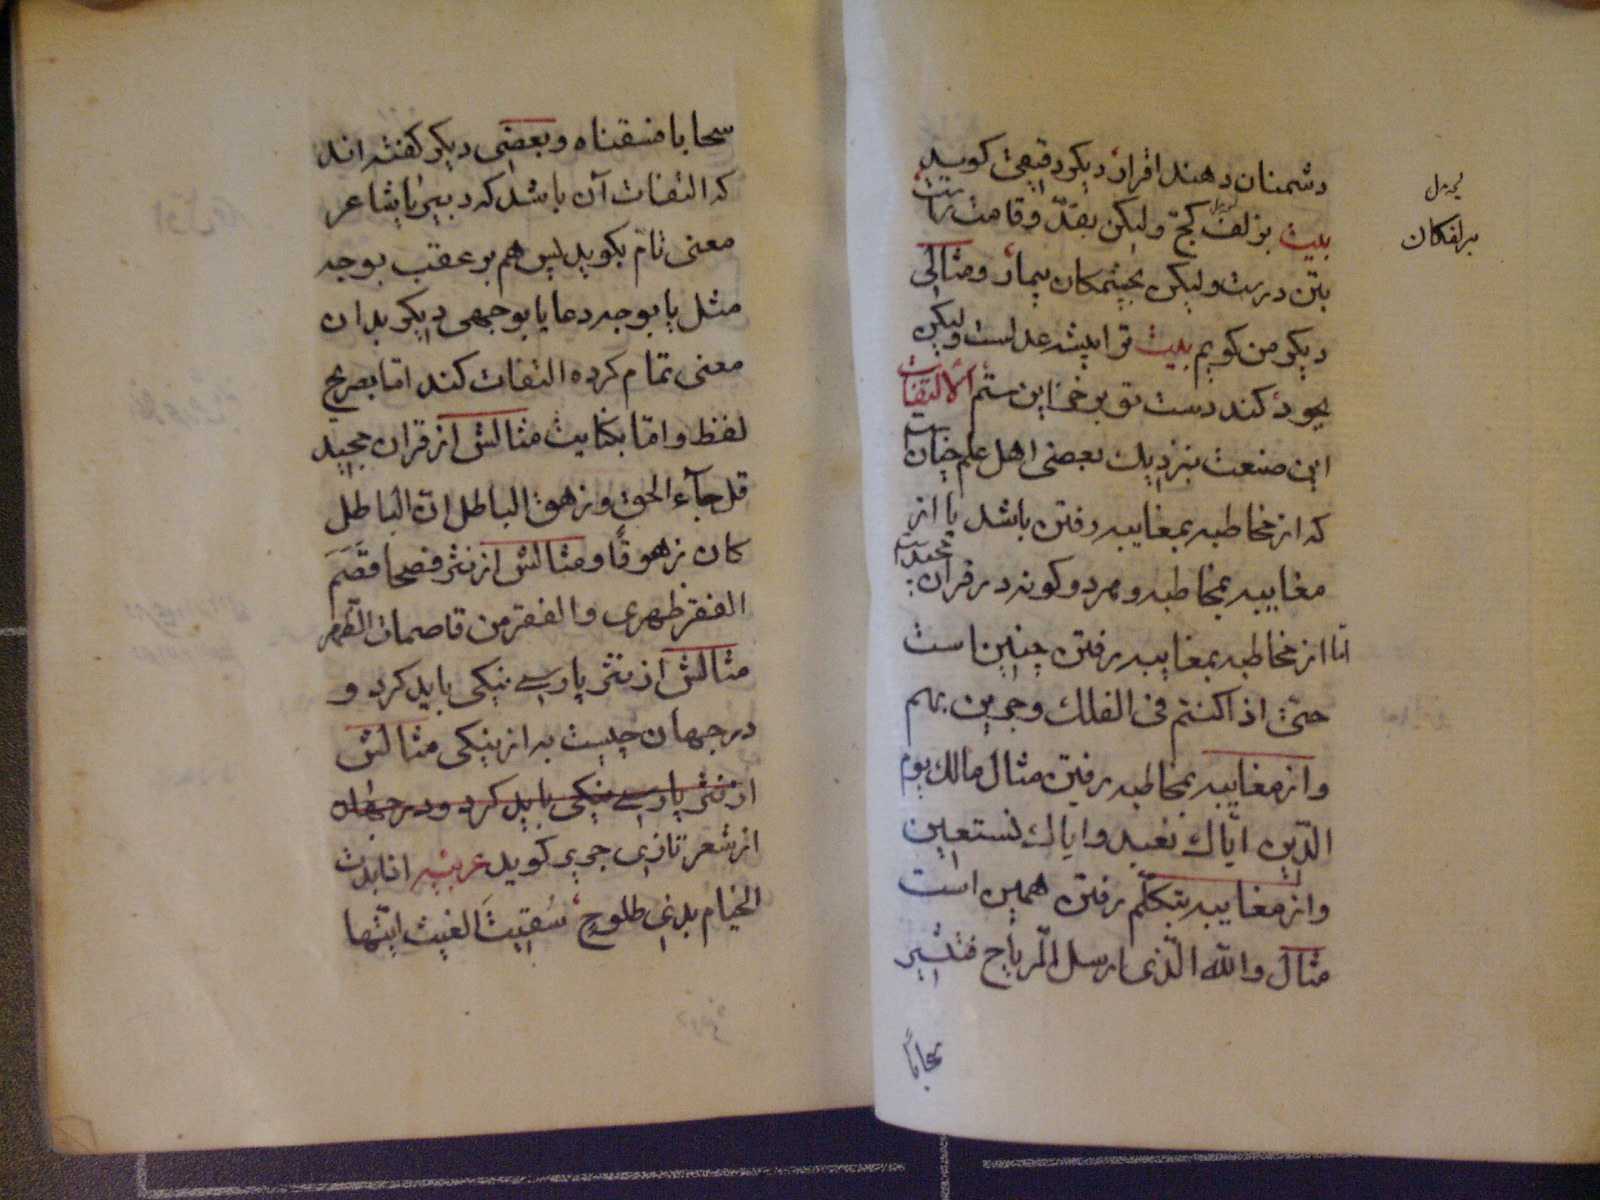 دشمنان دهند اقرار دیکر دقیقی کوید
بیت بزلف کج ولیکن بقدّ وقامت راست
بتن درست ولیکن بچشمکان بیمار ومثالی
دیکر من کویم بیت ترا پیشه عدلست ولیکن
بجود کند دست تو بر خزاین ستم الالتفات
این صنعت بنزدیك بعضی اهل علم چنانست
که از مخاطبه بمغایبه رفتن باشد یا از
مغایبه بمخاطبه و هر دو کونه در قران مجید
امّا از مخاطبه بمغایبه رفتن چنین است
حتّی اذا کنتم فی الفلك وجرین بهم
واز مغایبه بمخاطبه رفتن مثال مالك یوم
الدّین ایّاك نعبد وایاك نستعین
واز مغایبه بتکلّم رفتن همین است
مثال والله الّذی ارسل الّریاح فتثیر
سحابا
سحابا فسقناه وبعضی دیکر کفته اند
که التفات آن باشد که دبیر یا شاعر
معنی تامّ بکوید پس هم بر عقب بوجه
مثل یا بوجه دعا یا بوجهی دیکر بدان
معنی تمام کرده التفات کند امّا بصریح
لفظ وامّا بکنایت مثالش از قران مجید
قل جآء الحق وزهق الباطل ان الباطل
کان زهوقاً ومثالش از نثر فصحا قصَمَ
الفقر ظهری والفقر من قاصمات الظّهر
مثالش از نثر پارسی نیکی باید کرد و
در جهان چیست به از نیکی مثالش
از نثر پارسی نیکی باید کرد ودر جهان
از شعر تازی جریر کوید عربیه
الخیام بذی طلوحٍ سُقیتَ الغیث ایّتها